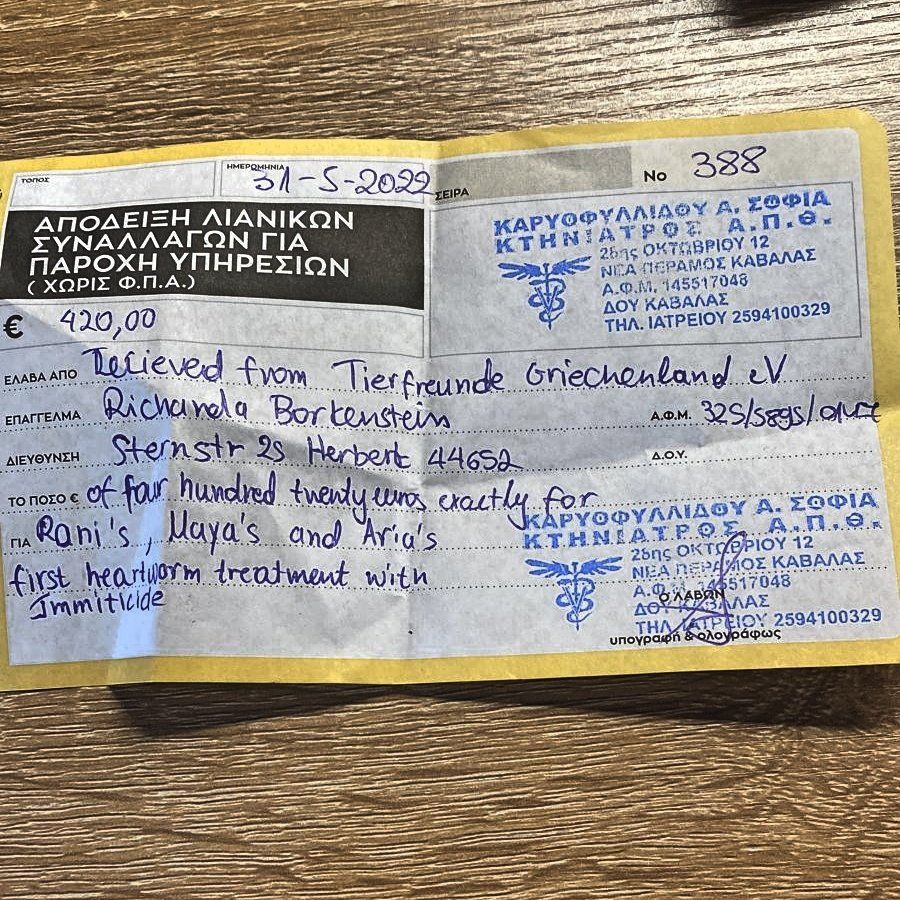 ΤΟΠΟΣ
ΗΜΕΡΟΜΗΝΙΑ 31-5-2022
ΣΕΙΡΑ
No 388
ΑΠΟΔΕΙΞΗ ΛΙΑΝΙΚΩΝ
ΣΥΝΑΛΛΑΓΩΝ ΓΙΑ
ΠΑΡΟΧΗ ΥΠΗΡΕΣΙΩΝ
(ΧΩΡΙΣ Φ.Π.Α.)
ΚΑΡΥΟΦΥΛΛΙΔΟΥ Α. ΣΟΦΙΑ
ΚΤΗΝΙΑΤΡΟΣ Α.Π.Θ.
26ης ΟΚΤΩΒΡΙΟΥ 12
ΝΕΑ ΠΕΡΑΜΟΣ ΚΑΒΑΛΑΣ
Α.Φ.Μ. 145517048
ΔΟΥ ΚΑΒΑΛΑΣ
ΤΗΛ. ΙΑΤΡΕΙΟΥ 2594100329
€ 420,00
ΕΛΑΒΑ ΑΠΟ Recieved from Tierfreunde Griechenland eV
ΕΠΑΓΓΕΛΜΑ Richarda Borkenstein Α.Φ.Μ.
ΔΙΕΥΘΥΝΣΗ Sternstr 25 Herbert 44652 Δ.Ο.Υ.
ΤΟ ΠΟΣΟ € of four hundred twenty euros exactly for
ΓΙΑ Rani's, Maya's and Aria's
first heartworm treatment with
Immiticide
ΚΑΡΥΟΦΥΛΛΙΔΟΥ Α. ΣΟΦΙΑ
ΚΤΗΝΙΑΤΡΟΣ Α.Π.Θ.
26ης ΟΚΤΩΒΡΙΟΥ 12
ΝΕΑ ΠΕΡΑΜΟΣ ΚΑΒΑΛΑΣ
Α.Φ.Μ. 145517048
Ο ΛΑΒΩΝ
ΔΟΥ ΚΑΒΑΛΑΣ
ΤΗΛ. ΙΑΤΡΕΙΟΥ 2594100329
υπογραφή & ολογράφως